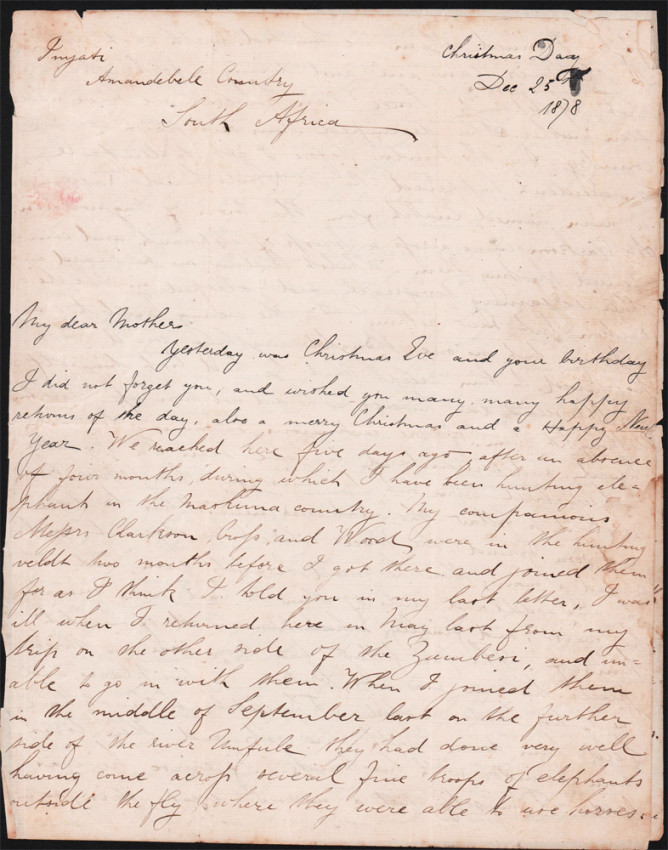 Inyati
Christmas Day
Amandebele Country
Dec 25th
South Africa
1878
My dear Mother
Yesterday was Christmas Eve and your birthday
I did not forget you, and wished you many, many happy
returns of the day, also a merry Christmas and a Happy New
Year. We reached here five days ago, after an absence
of four months, during which I have been hunting ele=
phants in the Mashuna country. My companions
Messrs Clarkson, Cross, and Wood, were in the hunting
veldt two months before I got there and joined them
for as I think I told you in my last letter, I was
ill when I returned here in May last from my
trip on the other side of the Zambesi, and un=
able to go in with them. When I joined them
in the middle of September last on the further
side of the river Umfule they had done very well
having come across several fine troops of elephants
outside the fly, where they were able to use horses.